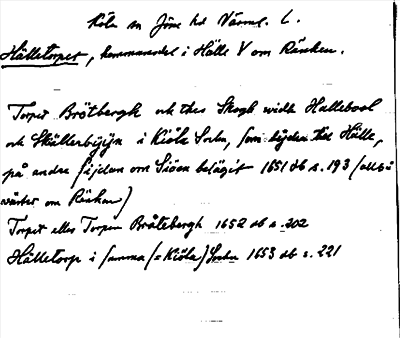 Köla sn Jösse hd Värml. L.
Hälletorpet, hemmansdel i Hälle V om Ränken.
Torpet Bråtbergh och thes Skogh widh Hallebool
och Skällarbyijn i Kiöla Sochn, som lyder till Hälle,
på andre sijdan om Siöen belägit 1651 db s. 193 (allts å
väster om Ränken)
Torpet eller Torpen Bråtebergh 1652 db s. 202
Hälletorp i samma (= Kiöla) Sochn 1653 db s. 221